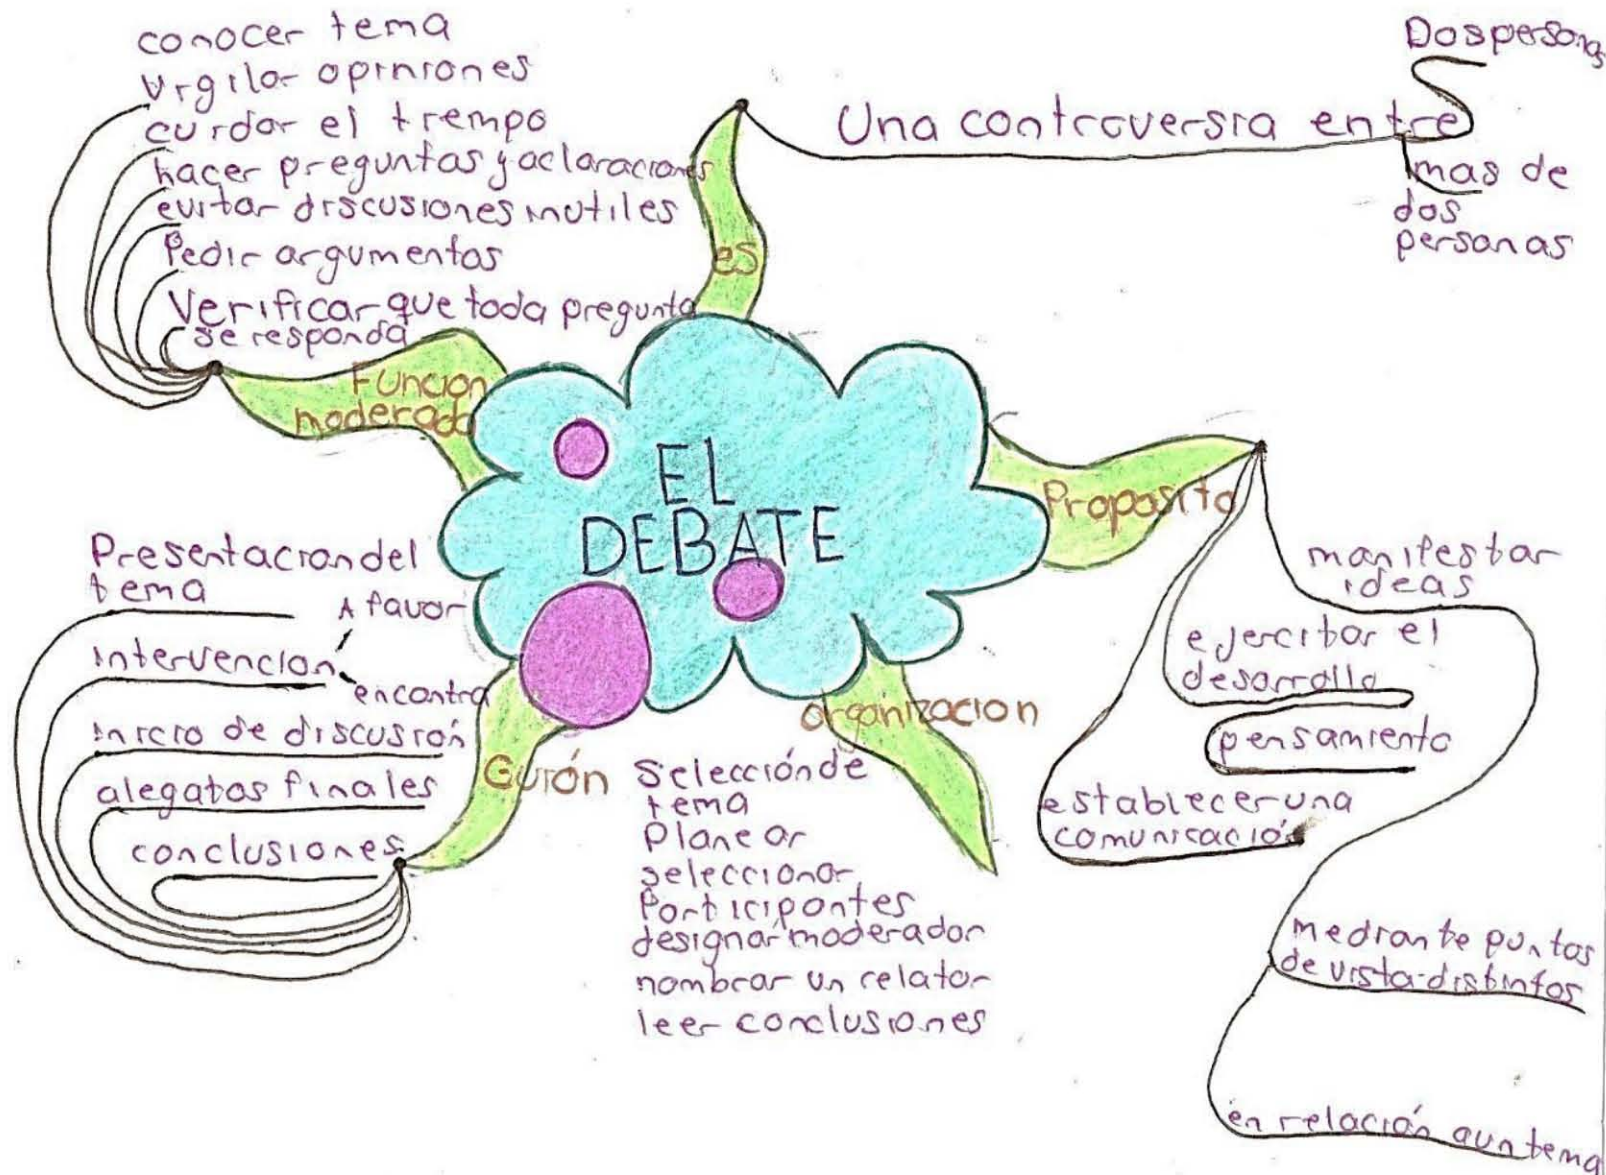 conocer tema
vigilar opiniones
cuidar el tiempo
hacer preguntas y aclaraciones
evitar discusiones inutiles
Pedir argumentos
Verificar que toda pregunta
se responda
Funcion
moderado
es
Una controversia entre
Dos personas
mas de
dos
personas
EL
DEBATE
Proposito
manifestar
ideas
ejercitar el
desarrollo
pensamiento
establecer una
comunicación
mediante puntos
de vista distintos
en relación a un tema
organizacion
Selección de
tema
Planear
seleccionar
Participantes
designar moderador
nombrar un relator
leer conclusiones
Guión
Presentacion del
tema
A favor
intervencion
encontra
inicio de discusión
alegatos finales
conclusiones